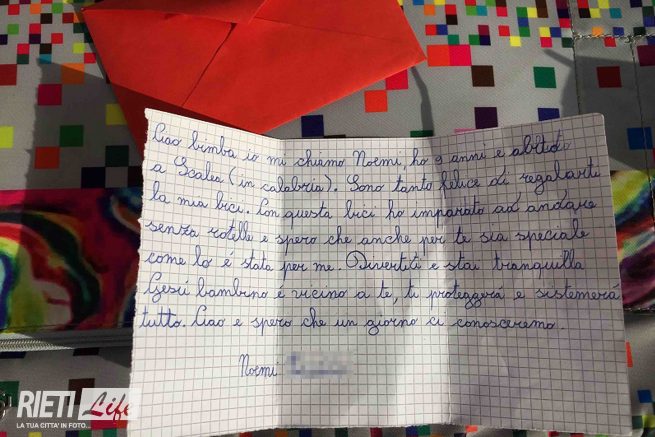 Ciao bimba io mi chiamo Noemi, ho 9 anni e abito
a Scalea (in calabria). Sono tanto felice di regalarti
la mia bici. Con questa bici ho imparato ad andare
senza rotelle e spero che anche per te sia speciale
come lo é stata per me. Divertiti e stai tranquilla
Gesú bambino é vicino a te, ti proteggerá e sistemerá
tutto. Ciao e spero che un giorno ci conosceremo.
Noemi
RIETI Life
LA TUA CITTA' IN FOTO...